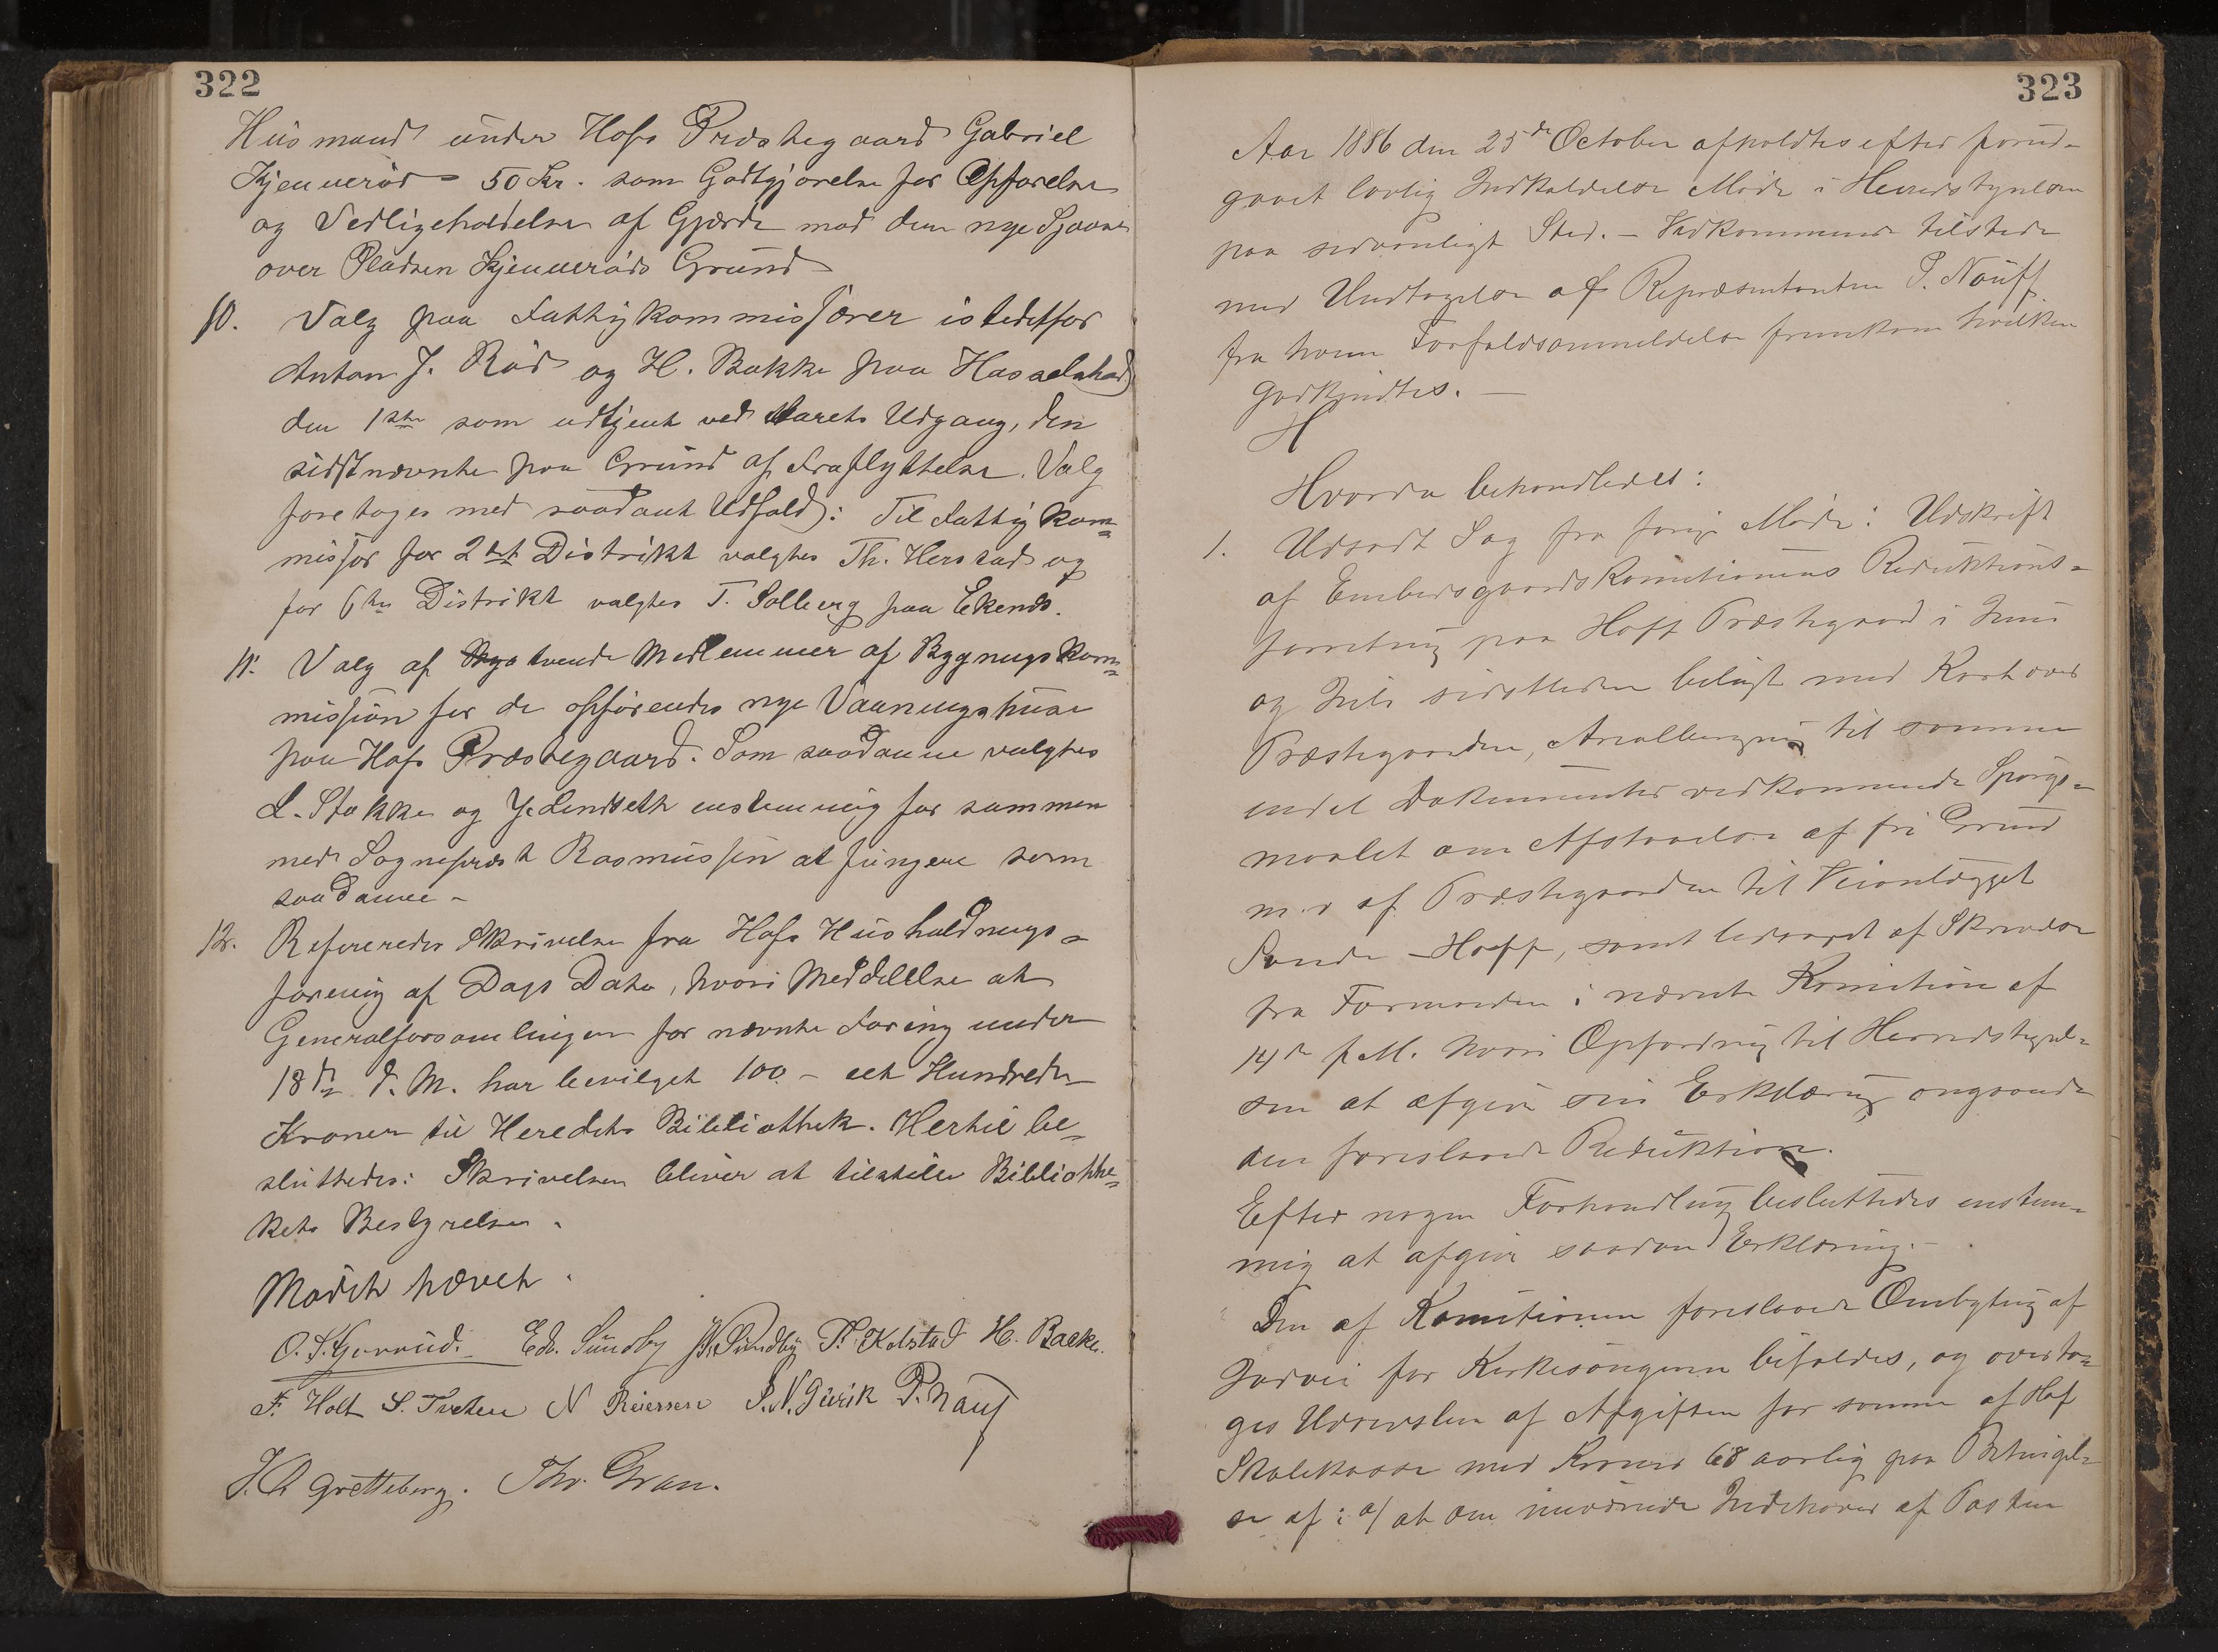 322
Huusmand under Hofs Præstegaard Gabriel
Kjennerød 50 Kr. som Godtgjørelse for Opførelse
og Vedligeholdelse af Gjærde mod den nye
over Pladsen Kjennerøds Grund
10. Valg paa Fattigkommissærer istedetfor
Anton J. Rød og H. Bakke paa Hasselnhad
den 1ste som udtjent ved Aarets Udgang, den
sidstnævnte paa Grund af Fraflyttelse. Valg
foretoges med saadant Udfald: Til Fattigkom=
missær for 2det Distrikt valgtes Th. Herstad og
for 6te Distrikt valgtes T. Solberg paa Ekends.
11. Valg af tvende Medlemmer af Bygnugskom=
mission for de opførendes nye Vaanungshuse
paa Hofs Præstegaard. Som saadanne valgtes
L. Stokke og enstemmig for sammen
med Sogneprest Rasmussen at fungere som
saadanne -
12. Refereredes Skrivelse fra Hofs Husholdnugs=
forening af Dags Dato, hvori Meddelelse at
Generalforsamlingen for nævnte Foreing under
18de d. M. har bevilget 100 - et Hundrede
Kroner til Heredets Bibliothek. Hertil be=
sluttedes: Skrivelsen bliver at tilstille Bibliothe=
kets Bestyrelse.
Mødet hævet.
O. S. Gjerrud. Edv. Sundby N. Sundby P. Kolstad H. Bakke.
F. Holt S. Tveten N Reiersen P. N. Gurik P. Nauf
J. A Grøtteberg. Thr. Gran.
323
Aar 1886 den 25de October afholdtes efter forud=
gaaet lovlig Indkaldelse Møde i Herredstyrelsen
paa sedvanligt Sted. - Vedkommende tilstede
med Undtagelse af Repræsentanten P. Nauff
fra hvem Forfaldsanmeldelse fremkom hvilken
godkjendtes. -
H
Hvorda behandledes:
1. Udsadt Sag fra forrige Møde: Udskrift
af Embedsgaardskomitionens Reduktions=
forretnig paa Hoff Præstegaard i Juni
og Juli sidstleden belagt med Kart over
Præstegaarden, Arealberegnig til samme
endel Dokumenter vedkommende Spørgs=
maalet om Afstaaelse af fri Grund
m.v af Præstegaarden til Veianlægget
Sande - Hoff, samt ledsaget af Skrivelse
fra Formanden i nævnte Komition af
14de f.M. hvori Opfordrig til Herredstyrel=
sen at afgive sin Erklærig angaaende
den foreslaaede Reduktion.
Efter nogen Forhandling besluttedes enstem=
mig at afgive saadan Erklæring. -
Den af Komitionen foreslaaede Ombytnig af
Jordvei for Kirkesangeren bifaldes, og overta=
ges Udredelsen af Afgiften for samme af Hof
Skolekasse med Kroner 68 aarlig paa Betingel=
se af: a/ at den nuværende Indehaver af Posten